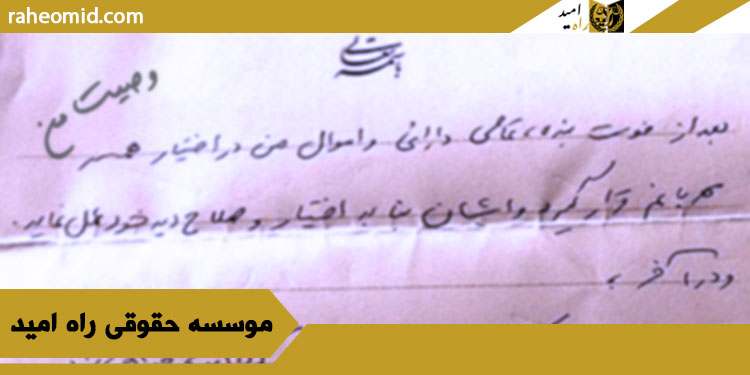 raheomid.com
امید
راه
بسمه تعالی
وصیت من
بعد از فوت بنده، تمامی دارائی و اموال من در اختیار همسر
مهربانم قرار گیرد و ایشان بنا به اختیار و صلاح دید خود عمل نماید.
و در آخر
موسسه حقوقی راه امید